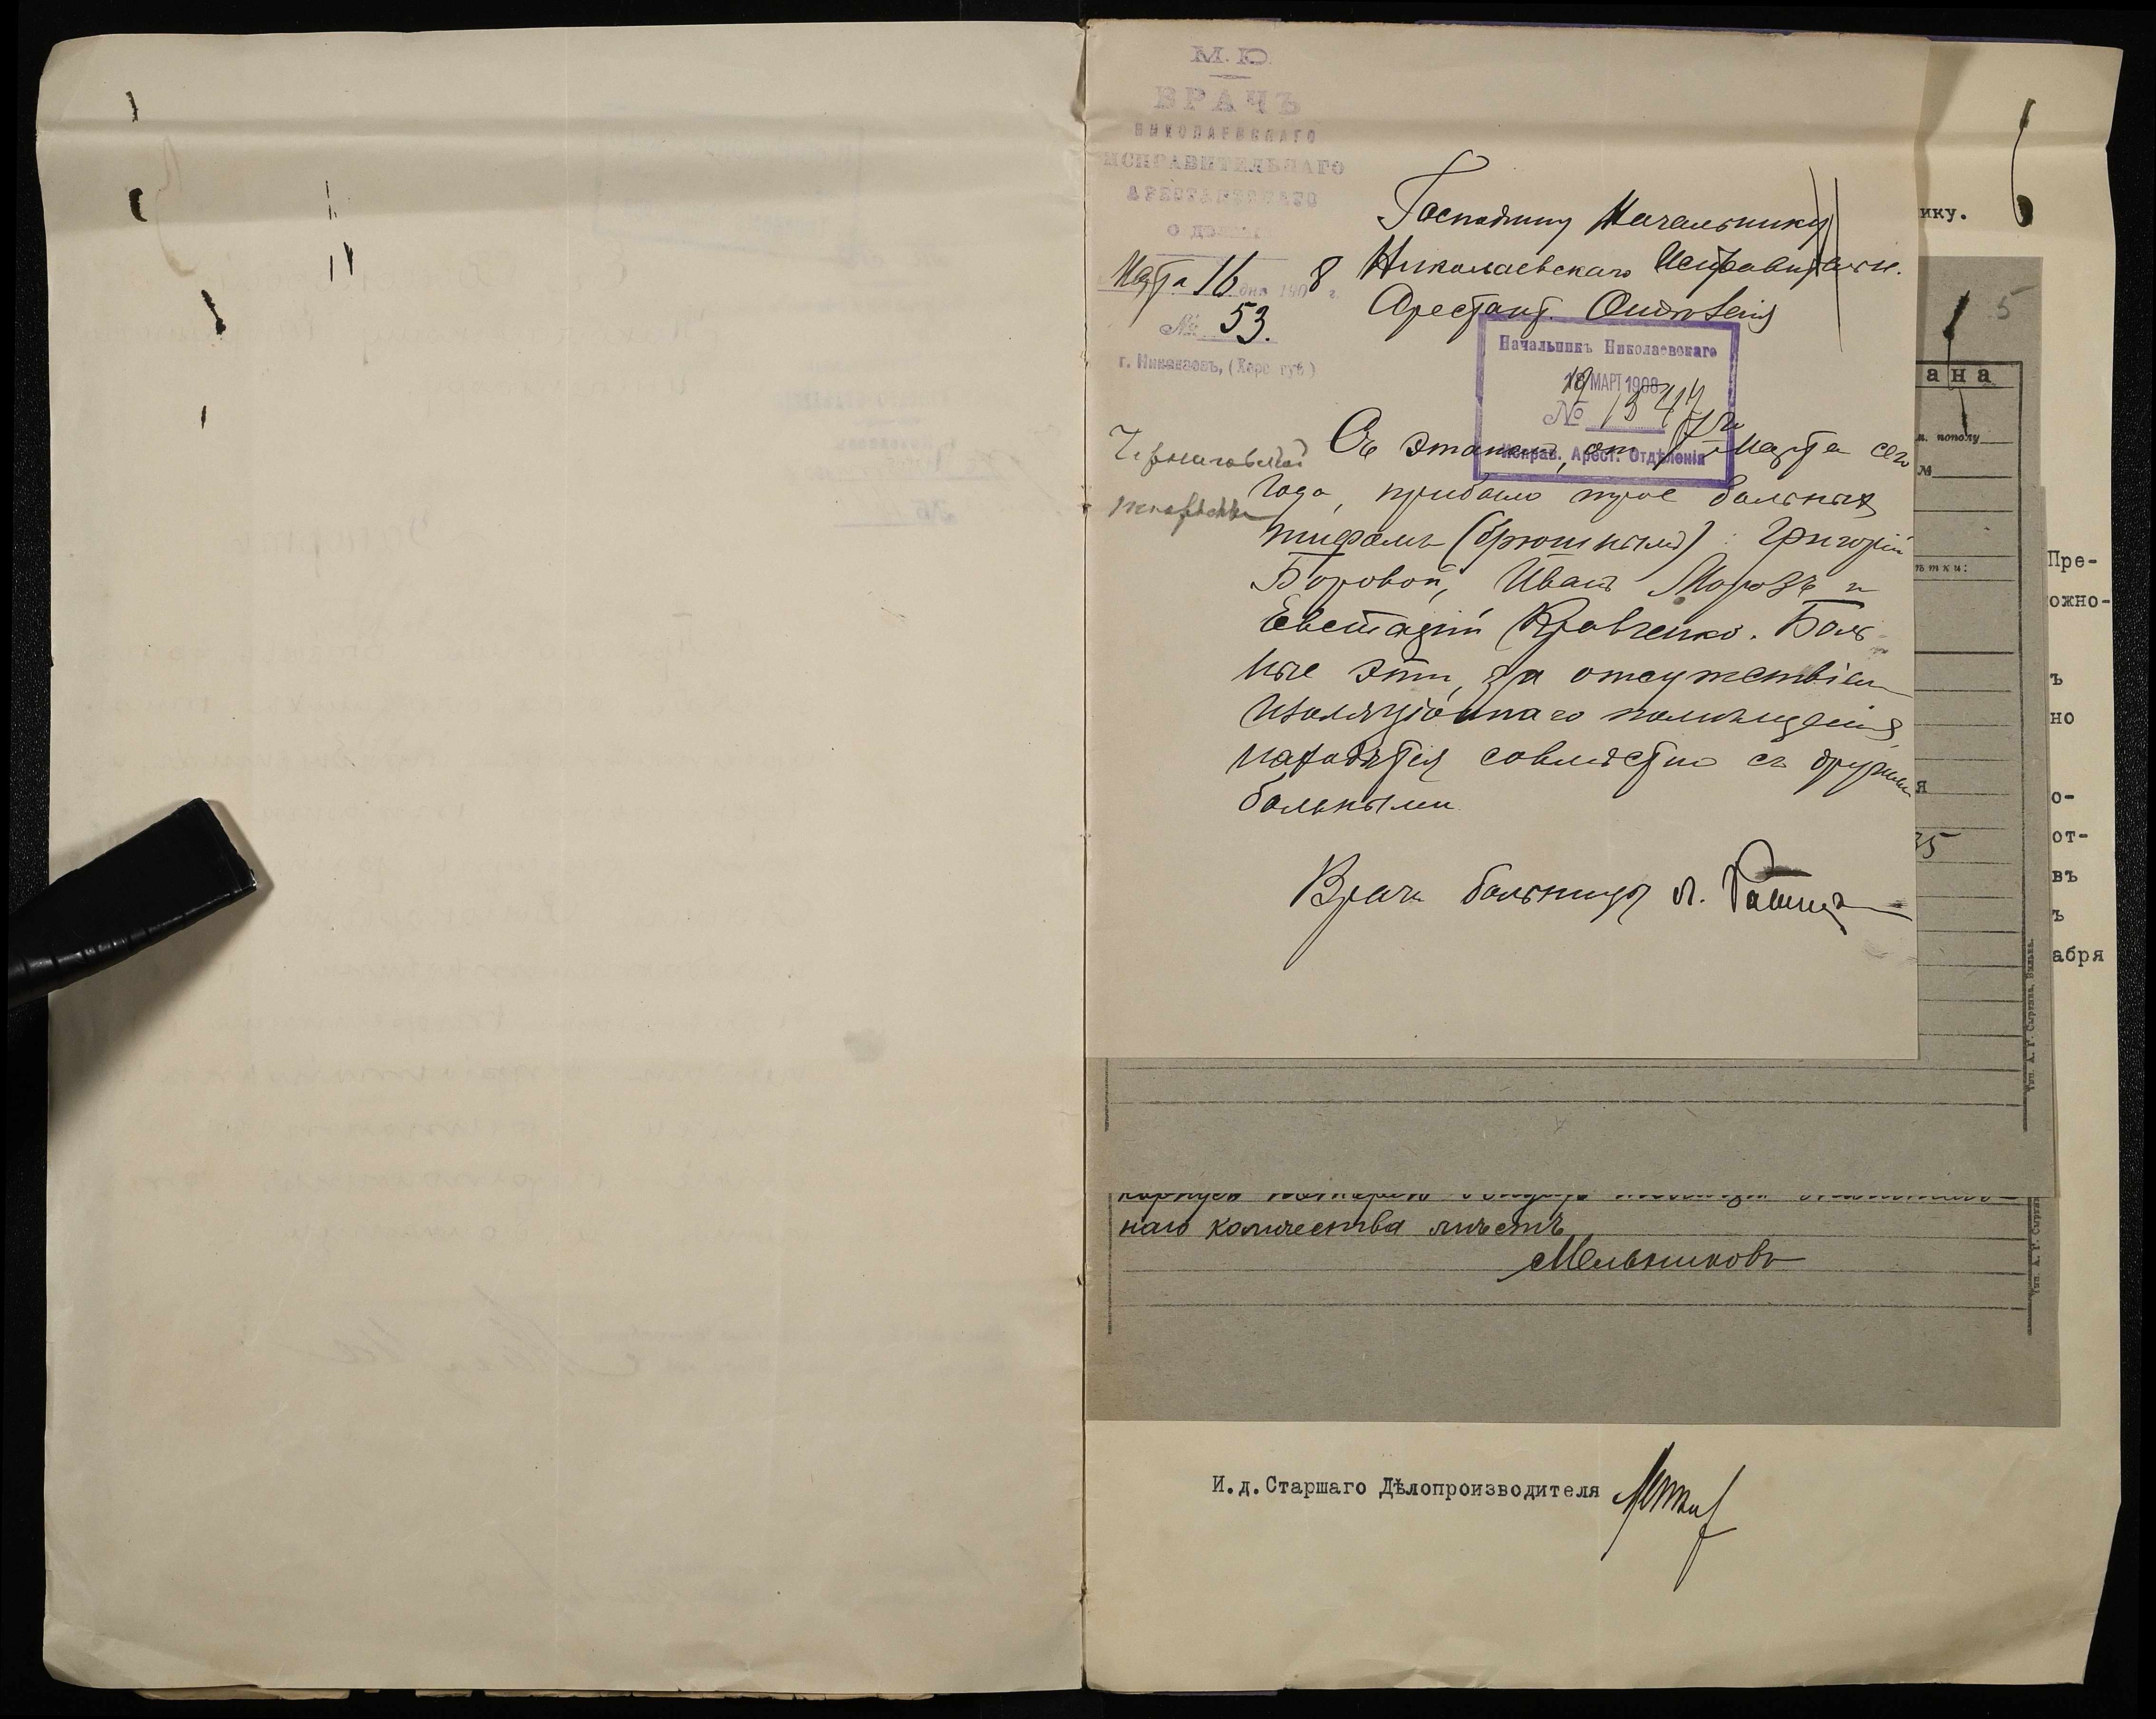 М. Ю.
ВРАЧЪ
НИКОЛАЕВСКАГО
ИСПРАВИТЕЛЬНАГО
АРЕСТАНТСКАГО
Марта 16 дня 1908 г.
№ 53.
г. Николаевъ, (Херс. губ.)
Господину Начальнику
Николаевскаго Исправительн.
Арестант. Отдѣленія
Начальникъ Николаевскаго
МАРТ 1908
№
Исправ. Арест. Отдѣленія
Черниговской
Съ этапомъ, отъ Марта сего
года, прибыло трое больныхъ
тифомъ (брюшнымъ): Григорій
Боровой, Иванъ Морозъ и
Евстафій Кравченко. Боль
ные эти, за отсутствіемъ
изоляціоннаго помѣщенія,
находятся совмѣстно съ другими
больными
Врачъ больницы Л.
ику.
5
ана
п. полу
№
ѣтки:
Пре-
ожно-
ъ
но
я
о-
35
от-
въ
ъ
абря
Тип. А. Г. Сыркина, Вильна.
наго количества мѣстъ
Мельниковъ
Тип. А. Г. Сыркин
И.д.Старшаго Дѣлопроизводителя